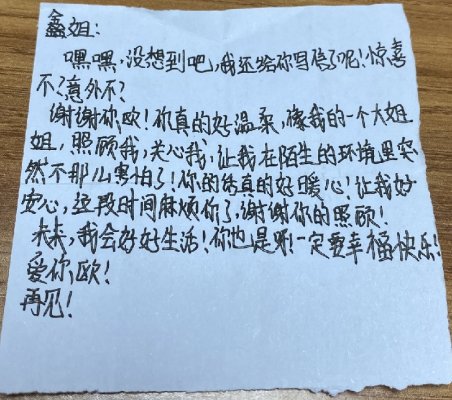 鑫姐:
嘿嘿,没想到吧,我还给你写信了呢!惊喜
不?意外不?
谢谢你欧!你真的好温柔,像我的一个大姐
姐,照顾我,关心我,让我在陌生的环境里突
然不那么害怕了!你的信真的好暖心!让我好
安心,这段时间麻烦你了,谢谢你的照顾!
未来,我会好好生活!你也是哦!一定要幸福快乐!
爱你欧!
再见!